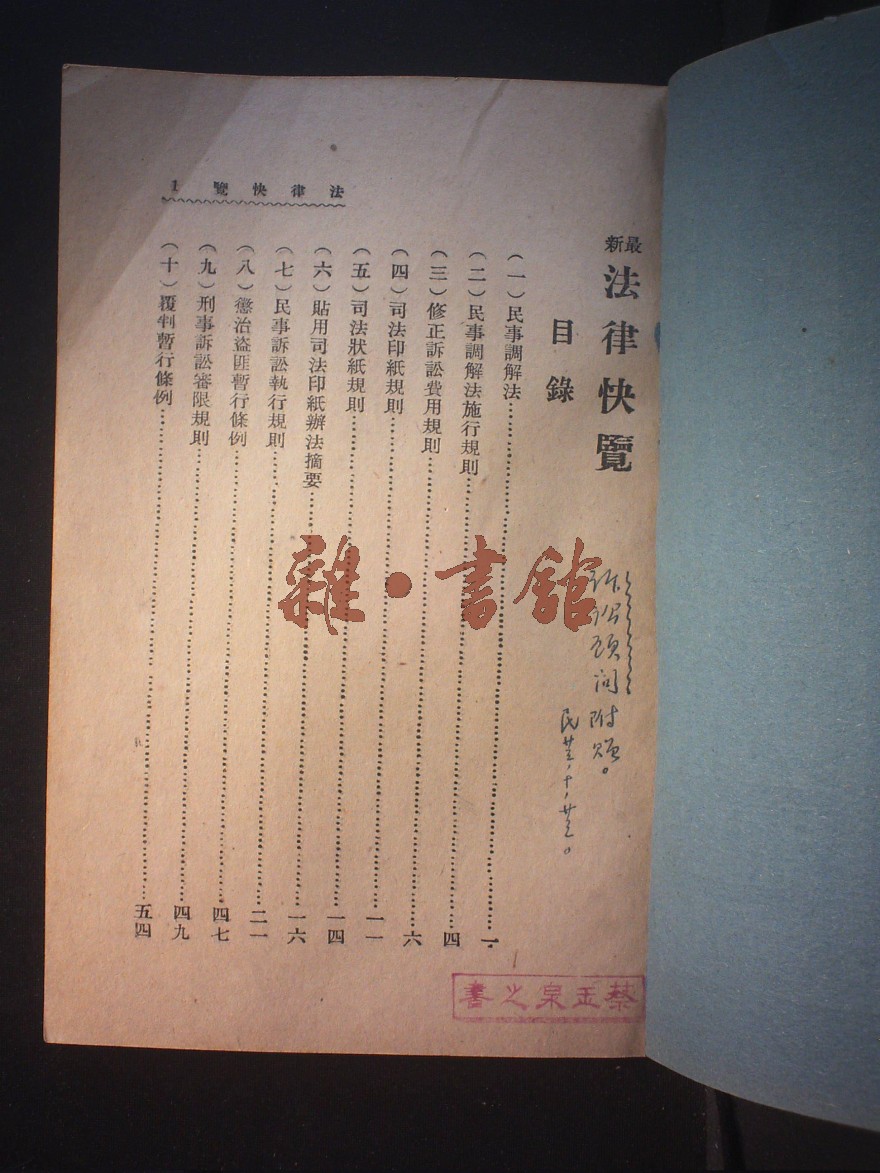 最新法律快覽
目錄
(一)民事調解法……一
(二)民事調解法施行規則……四
(三)修正訴訟費用規則……六
(四)司法印紙規則……一一
(五)司法狀紙規則……一四
(六)貼用司法印紙辦法摘要……一六
(七)民事訴訟執行規則……二一
(八)懲治盜匪暫行條例……四七
(九)刑事訴訟審限規則……四九
(十)覆判暫行條例……五四
法律快覽 1
訴訟顧問附贈。
民廿三、十、廿三。
蔡玉泉之書
雜·書館